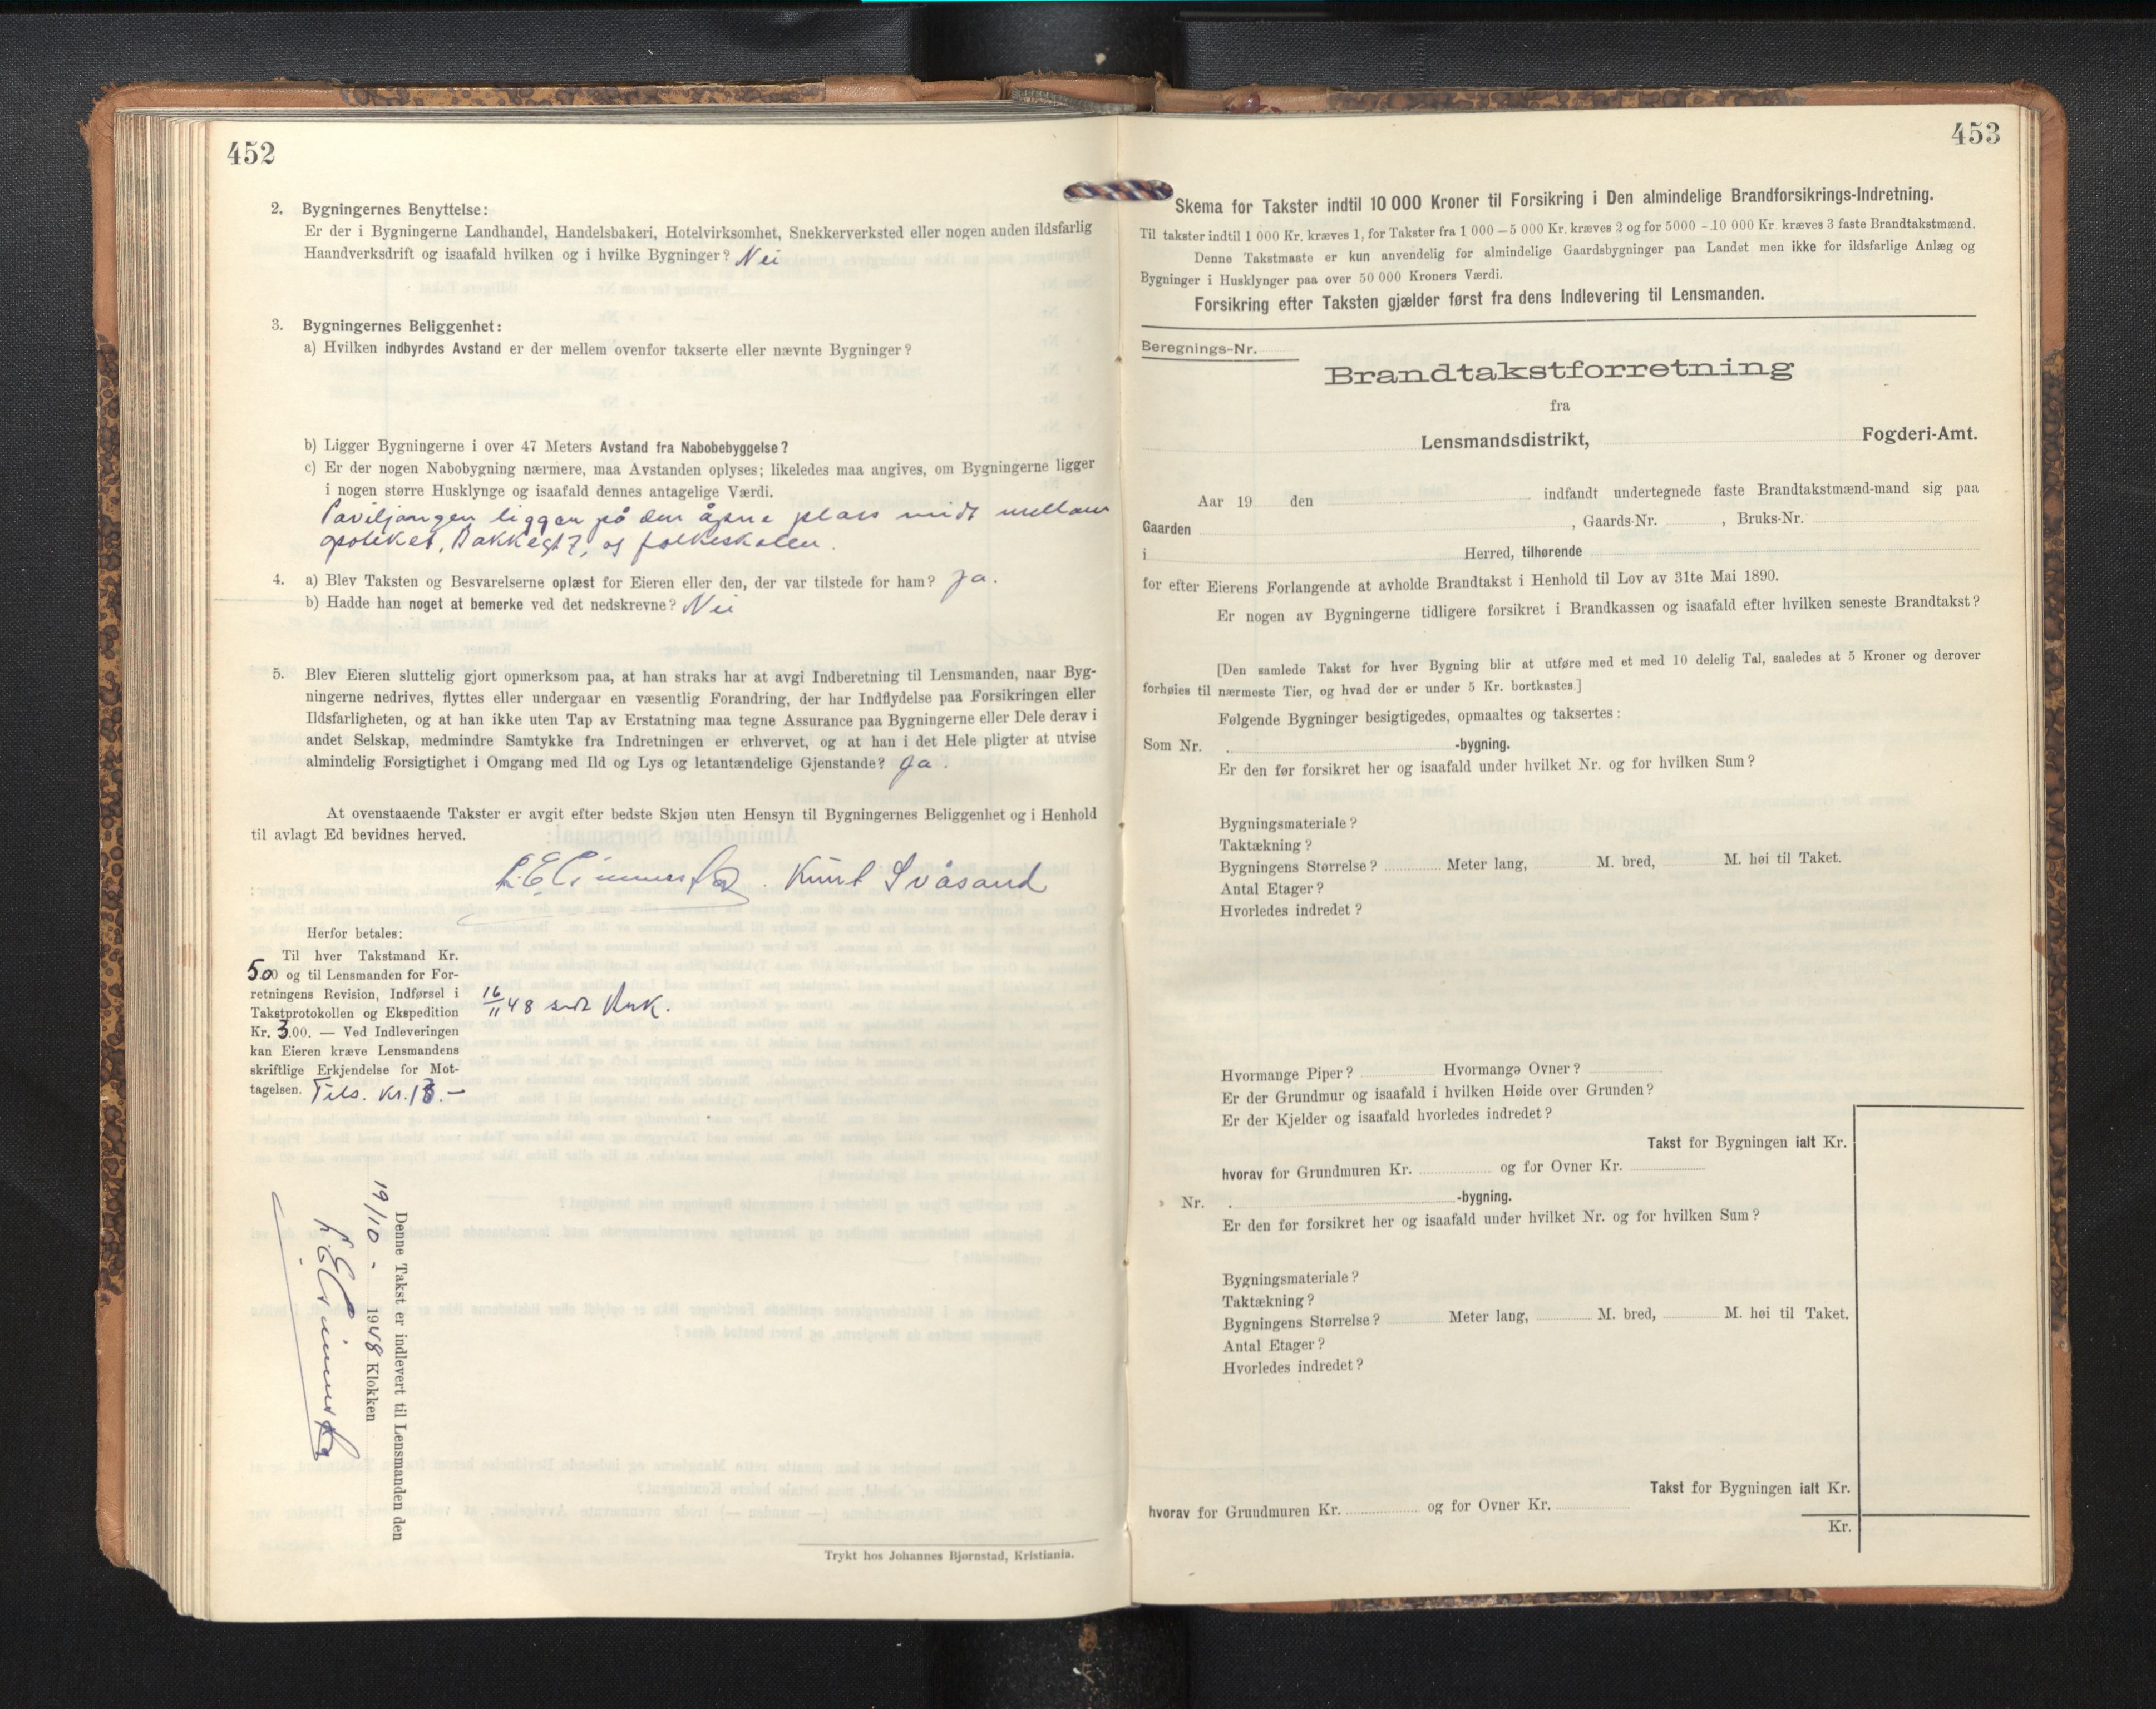 452
2. Bygningernes Benyttelse:
Er der i Bygningerne Landhandel, Handelsbakeri, Hotelvirksomhet, Snekkerverksted eller nogen anden ildsfarlig
Haandverksdrift og isaafald hvilken og i hvilke Bygninger? Nei
3. Bygningernes Beliggenhet:
a) Hvilken indbyrdes Avstand er der mellem ovenfor takserte eller nævnte Bygninger?
b) Ligger Bygningerne i over 47 Meters Avstand fra Nabobebyggelse?
c) Er der nogen Nabobygning nærmere, maa Avstanden oplyses; likeledes maa angives, om Bygningerne ligger
i nogen større Husklynge og isaafald dennes antagelige Værdi.
Paviljongen ligger på den åpne plass midt mellom
apoteket, Bakkegt 7, og folkeskolen.
4. a) Blev Taksten og Besvarelserne oplæst for Eieren eller den, der var tilstede for ham? Ja.
b) Hadde han noget at bemerke ved det nedskrevne? Nei
5. Blev Eieren sluttelig gjort opmerksom paa, at han straks har at avgi Indberetning til Lensmanden, naar Byg-
ningerne nedrives, flyttes eller undergaar en væsentlig Forandring, der har Indflydelse paa Forsikringen eller
Ildsfarligheten, og at han ikke uten Tap av Erstatning maa tegne Assurance paa Bygningerne eller Dele derav i
andet Selskap, medmindre Samtykke fra Indretningen er erhvervet, og at han i det Hele pligter at utvise
almindelig Forsigtighet i Omgang med Ild og Lys og letantændelige Gjenstande? Ja.
At ovenstaaende Takster er avgit efter bedste Skjøn uten Hensyn til Bygningernes Beliggenhet og i Henhold
til avlagt Ed bevidnes herved.
Knut Svåsand
Herfor betales:
Til hver Takstmand Kr.
5.00 og til Lensmanden for For-
retningens Revision, Indførsel i
Takstprotokollen og Ekspedition
Kr. 3.00. — Ved Indleveringen
kan Eieren kræve Lensmandens
skriftlige Erkjendelse for Mot-
tagelsen. Tils. Kr. 13.-
16/11 48
Denne Takst er indlevert til Lensmanden den
19/10 - 1948 Klokken
Trykt hos Johannes Bjørnstad, Kristiania.
453
Skema for Takster indtil 10 000 Kroner til Forsikring i Den almindelige Brandforsikrings-Indretning.
Til takster indtil 1 000 Kr. kræves 1, for Takster fra 1 000 — 5 000 Kr. kræves 2 og for 5000 - 10 000 Kr. kræves 3 faste Brandtakstmænd.
Denne Takstmaate er kun anvendelig for almindelige Gaardsbygninger paa Landet men ikke for ildsfarlige Anlæg og
Bygninger i Husklynger paa over 50 000 Kroners Værdi.
Forsikring efter Taksten gjælder først fra dens Indlevering til Lensmanden.
Beregnings-Nr.
Brandtakstforretning
fra
Lensmandsdistrikt, Fogderi-Amt.
Aar 19 den indfandt undertegnede faste Brandtakstmænd-mand sig paa
Gaarden , Gaards-Nr. , Bruks-Nr.
i Herred, tilhørende
for efter Eierens Forlangende at avholde Brandtakst i Henhold til Lov av 31te Mai 1890.
Er nogen av Bygningerne tidligere forsikret i Brandkassen og isaafald efter hvilken seneste Brandtakst?
[Den samlede Takst for hver Bygning blir at utføre med et med 10 delelig Tal, saaledes at 5 Kroner og derover
forhøies til nærmeste Tier, og hvad der er under 5 Kr. bortkastes.]
Følgende Bygninger besigtigedes, opmaaltes og taksertes:
Som Nr. . -bygning.
Er den før forsikret her og isaafald under hvilket Nr. og for hvilken Sum?
Bygningsmateriale?
Taktækning?
Bygningens Størrelse? Meter lang, M. bred, M. høi til Taket.
Antal Etager?
Hvorledes indredet?
Hvormange Piper? Hvormange Ovner?
Er der Grundmur og isaafald i hvilken Høide over Grunden?
Er der Kjelder og isaafald hvorledes indredet?
Takst for Bygningen ialt Kr.
hvorav for Grundmuren Kr. og for Ovner Kr.
» Nr. . -bygning.
Er den før forsikret her og isaafald under hvilket Nr. og for hvilken Sum?
Bygningsmateriale?
Taktækning?
Bygningens Størrelse? Meter lang, M. bred, M. høi til Taket.
Antal Etager?
Hvorledes indredet?
Takst for Bygningen ialt Kr.
hvorav for Grundmuren Kr. og for Ovner Kr.
Kr.